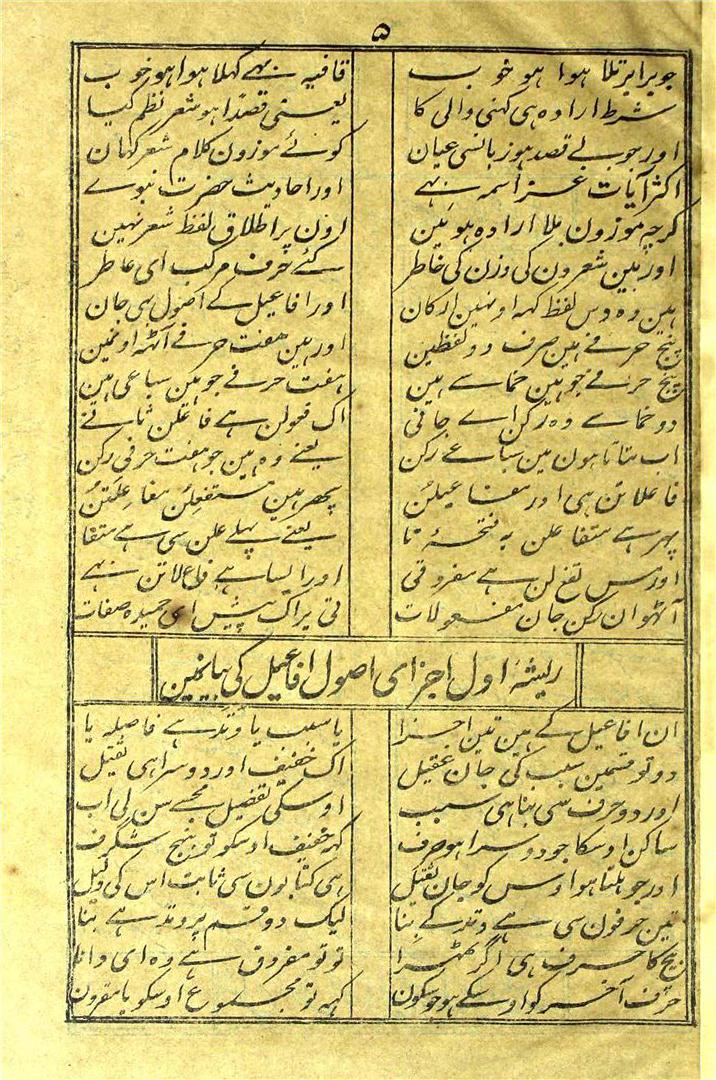 ۵
جو برابر تلا ہوا ہو خوب قافیہ بہی کہلا ہوا ہو خوب
شرط ارادہ ہی کہنی والی کا یعنی قصداً ہو شعر نظم کیا
اور جو بی قصد ہو زبانسی عیان کوئے موزون کلام شعر کہان
اکثر آیات عز اسمہ بہے اور احادیث حضرت نبوے
گرچہ موزون بلا ارادہ ہوئین اون پر اطلاق لفظ شعر نہین
اور ہین شعرون کی وزن کی خاطر کئے حرف مرکب ای عاطر
ہین وہ دس لفظ کہہ اونہین ارکان اور افاعیل کے اصول ہی جان
پنج حرفے ہین صرف دو لفظین اور ہین ہفت حرفے آٹہہ اونمین
پنج حرفے جو ہین خماسے ہین ہفت حرفے جو ہین سباعی ہین
دو خماسے وہ رکن اے جانی اک فعولن ہے فاعلن ثانے
اب بتاتا ہون مین سباعے رکن یعنے وہ ہین جو ہفت حرفی رکن
فاعلاتن ہی اور مفاعیلن پھر ہین مستفعلن مفاعلتن
پہر ہے متفاعلن بہ فتحۂ تا یعنے پہلے علن سی ہے متفا
اور مس تفع لن ہے مفروقی اور ایسا ہے فاع لاتن بہے
آٹھوان رکن جان مفعولات تی پر اک پیش ای حمیدہ صفات
ریشۂ اول اجزای اصول افاعیل کی بیانمین
ان افاعیل کے ہین تین اجزا یا سبب یا وتد ہے فاصلہ یا
دو تو قسمین سبب کی جان عقیل اک خفیف اور دوسرا ہی ثقیل
اور دو حرف سی بنا ہی سبب اوسکی تفصیل مجھے سن لی اب
ساکن اوسکا جو دوسرا ہو حرف کہہ خفیف اوسکو تو بنہج شگرف
اور جو ہلتا ہو اوس کو جان ثقیل ہی کتابون سی ثابت اس کی دلیل
تین حرفون سی ہے وتد کے بنا لیک دو قسم پر وتد ہے بنا
بیچ کا حرف ہی اگر ٹھہرا تو تو مفروق ہے وہ ای دانا
حرف آخر کو اوسکے ہو جو سکون کہہ تو مجموع اوسکو یا مقرون